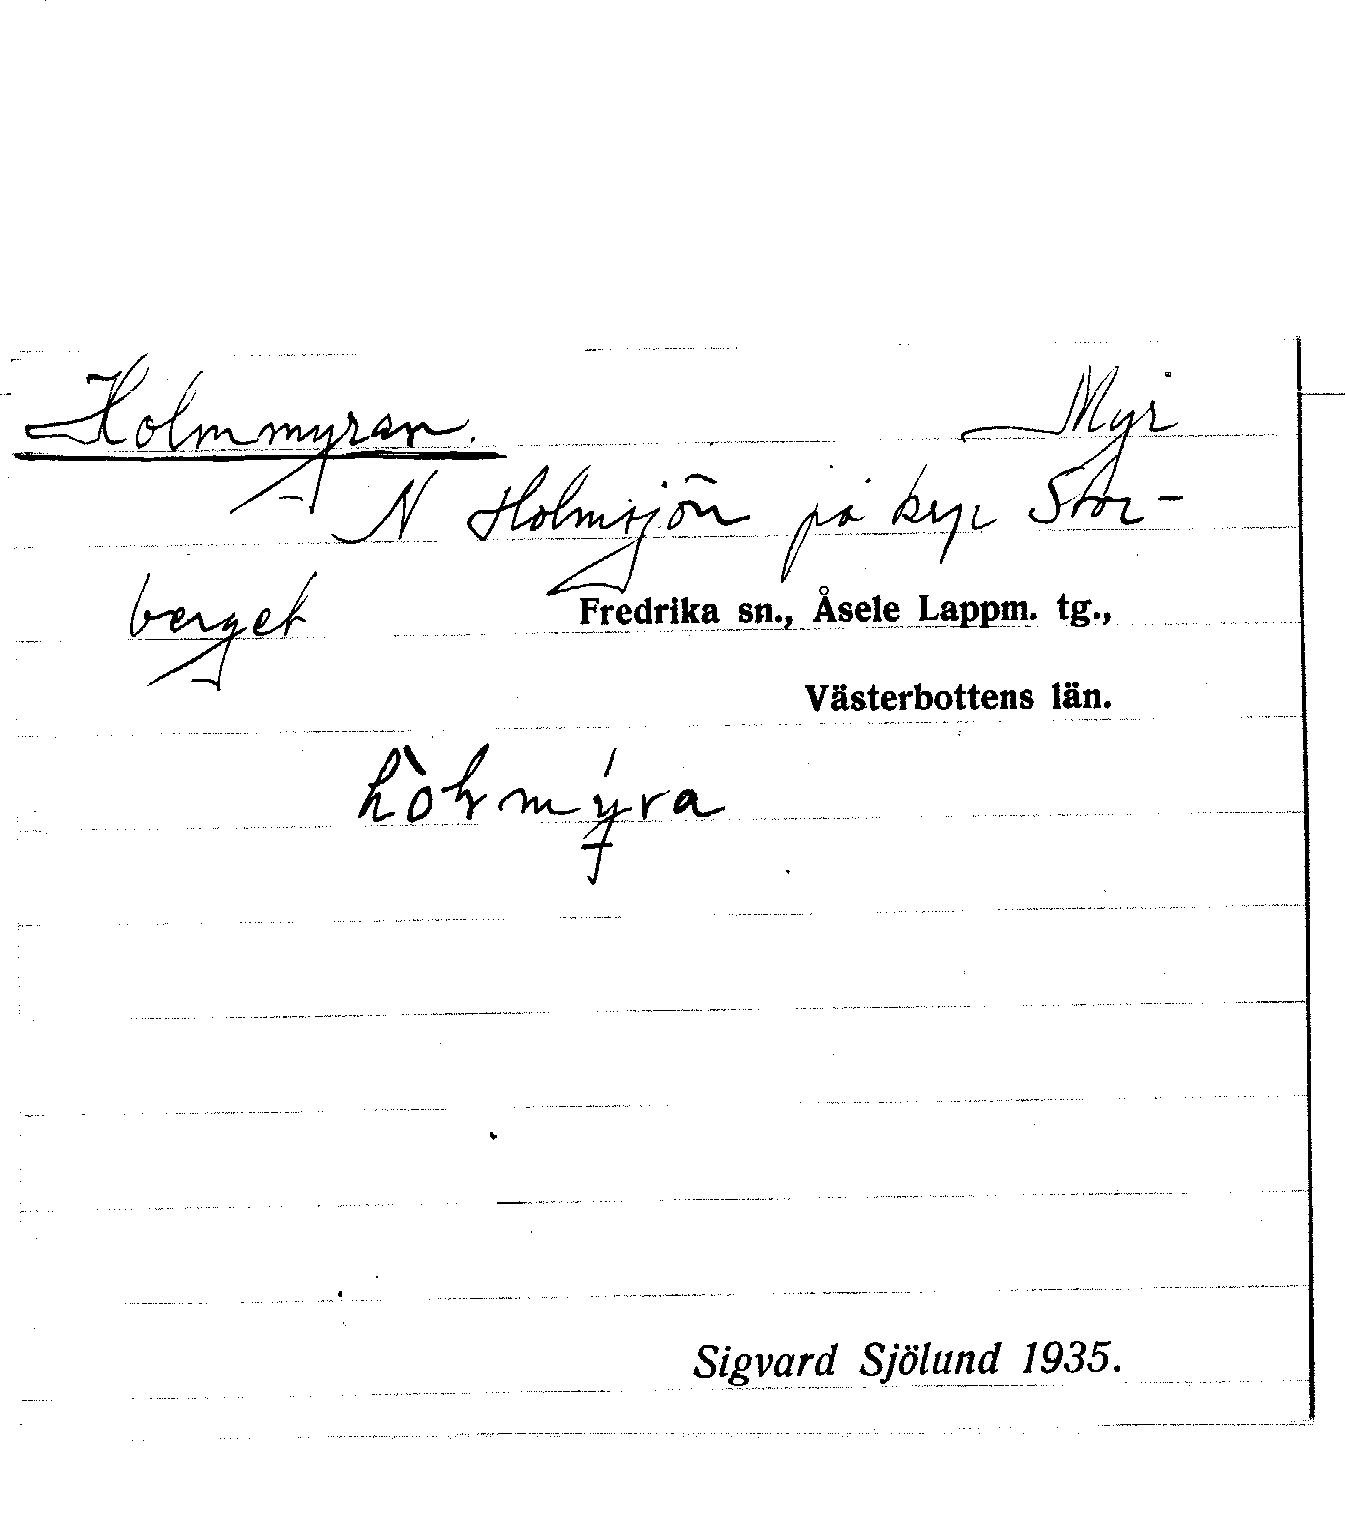 Holmmyran. Myr
N Holmsjön på krp Stor-
berget
Fredrika sn., Åsele Lappm. tg.,
Västerbottens län.
Sigvard Sjölund 1935.